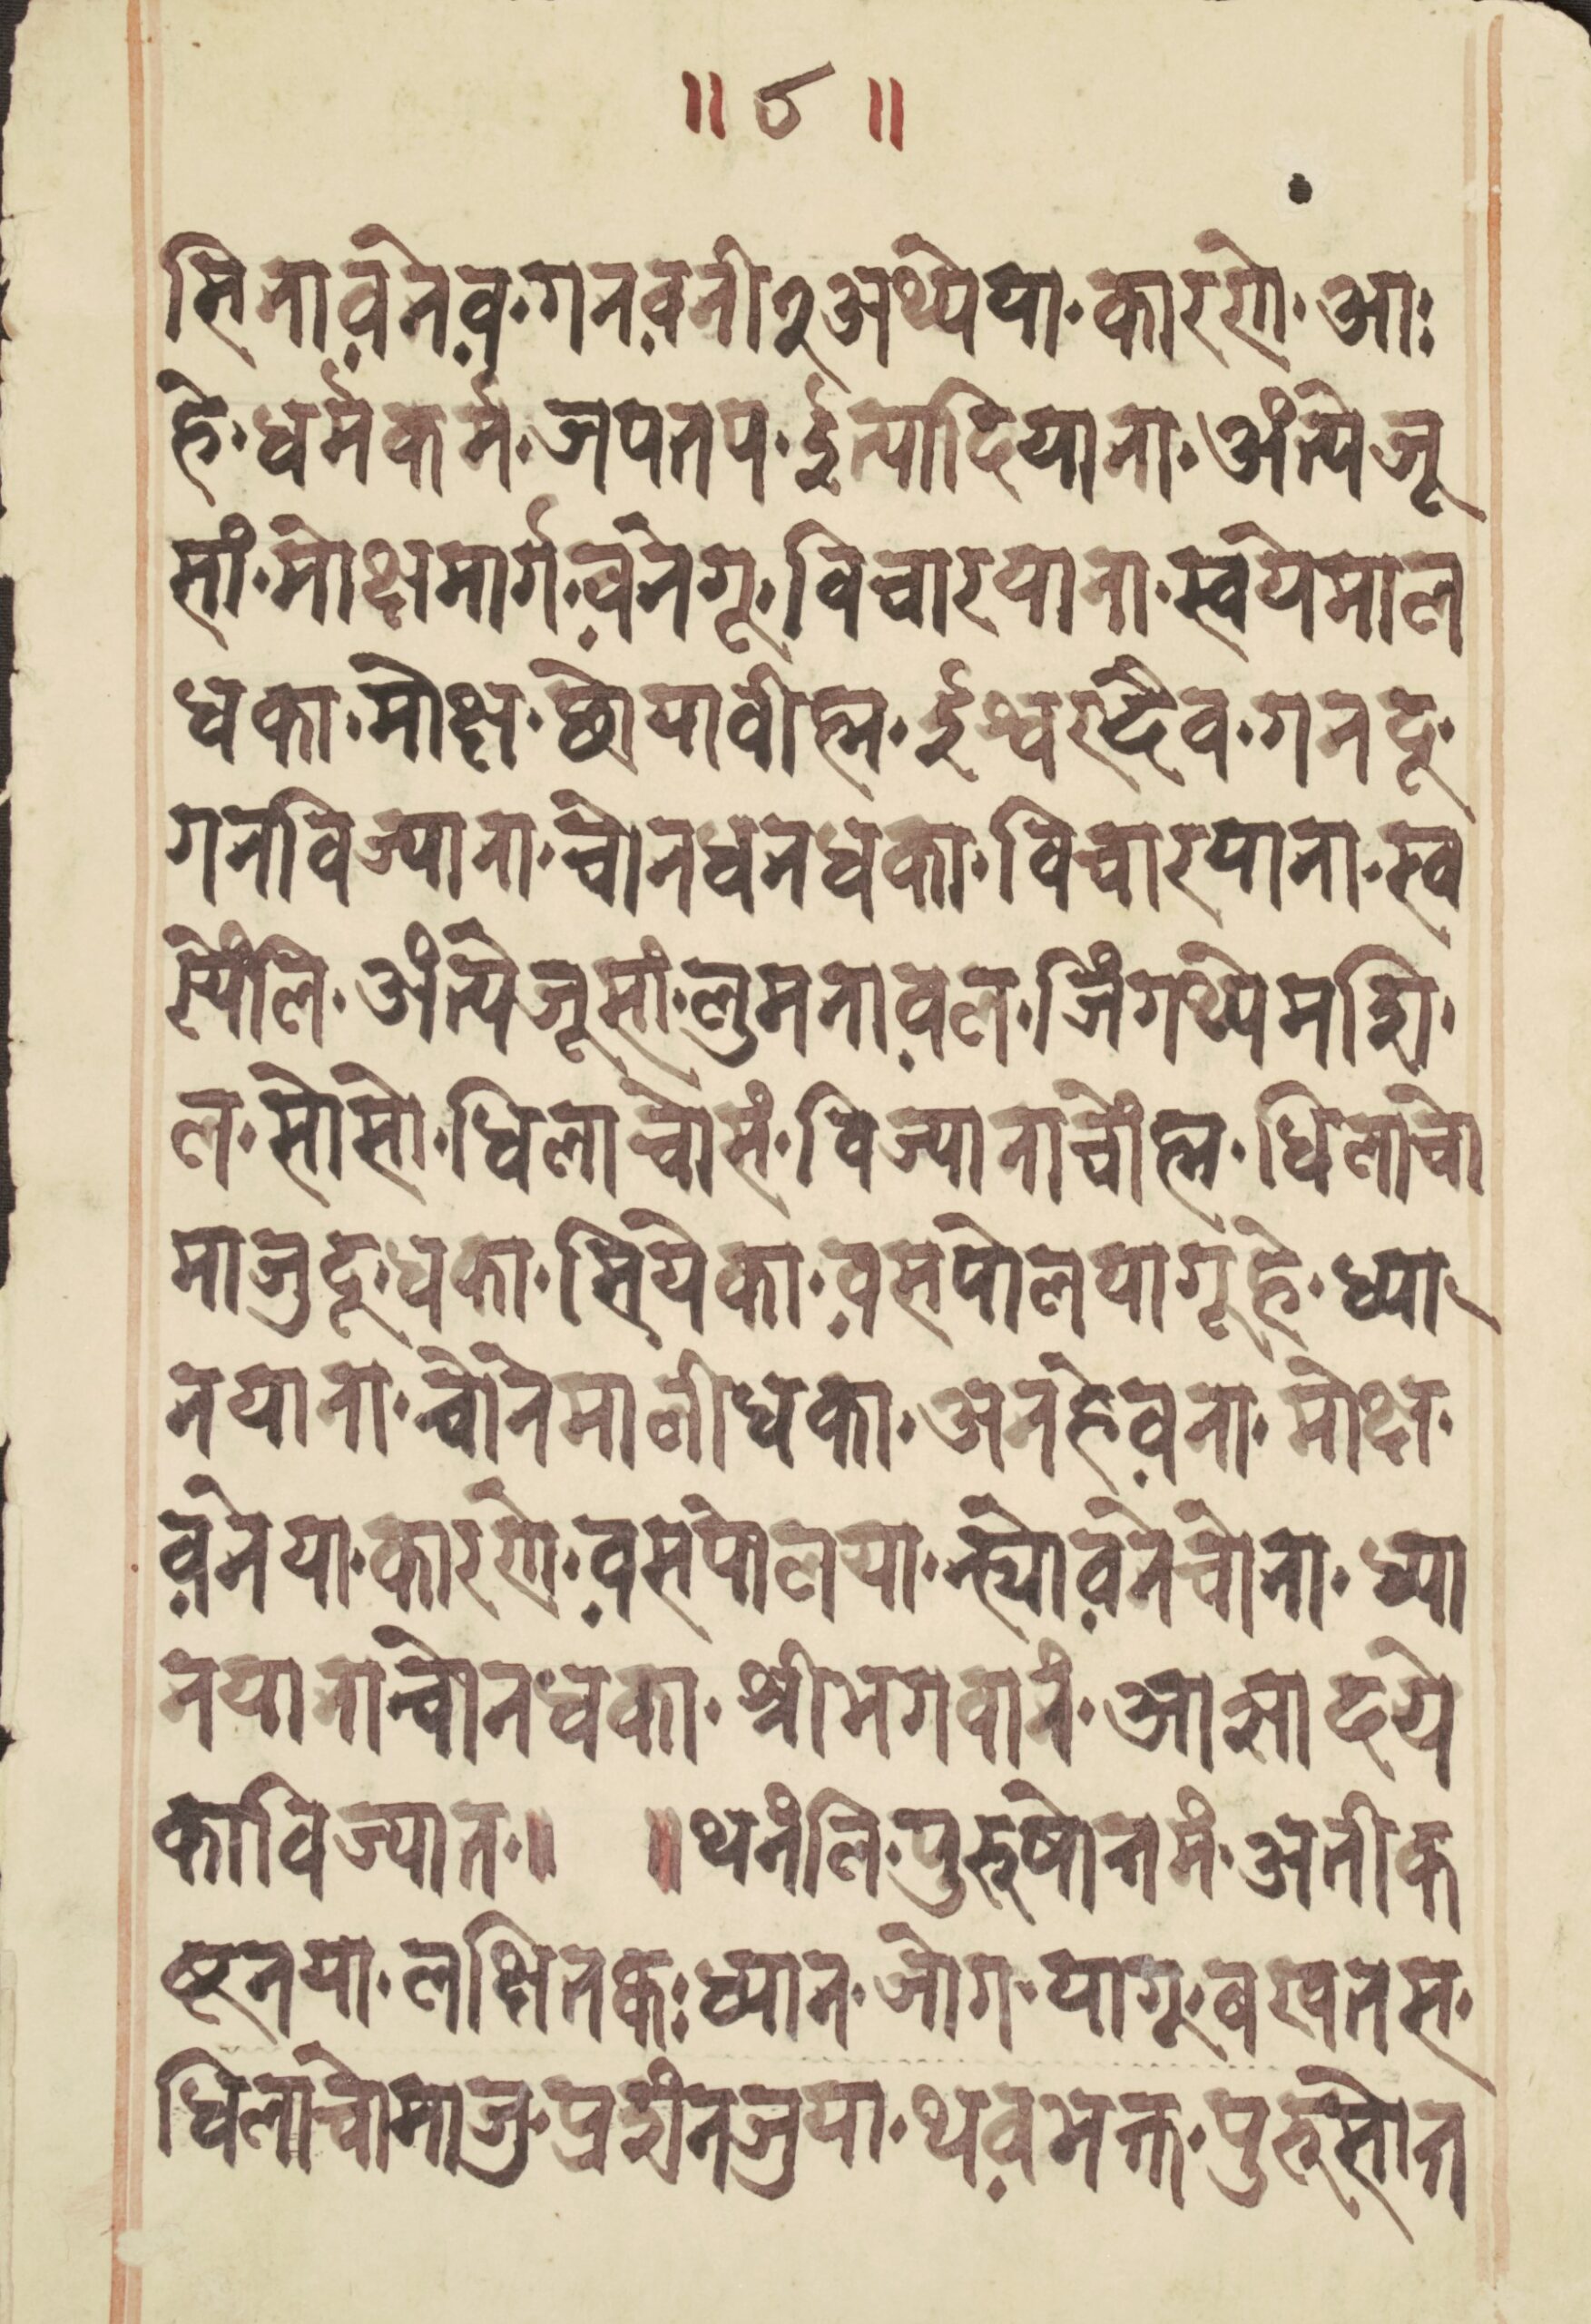 ॥ ८ ॥
सिनाव़नेव़·गनव़नी२अथ्येया·कारणे·आः
हे·धर्मकर्म·जपतप·ईत्यादियाना·अंत्येजू
सां·मोक्षमार्ग·व़नेगू·विचारयाना·स्वयेमाल
धका·मोक्ष·छोयावीह्म·ईश्वरदेव·गनदू·
गनविज्याना·चोनधनधका·विचारयाना·स्व
येंलि·अंत्येजूसां·लुमनाव़ल·जिंगथ्येमछि·
ल·सोसो·धिलाचोसं·विज्यानाचोंह्म·धिलाचो
माजुदू·धका·सियेका·व़सपोलयागूहे·ध्या
नयाना·चोनेमालीधका·अनहेव़ना·मोक्ष·
व़नेया·कारणे·व़सपोलया·न्ह्योव़नेचोना·ध्या
नयानाचोनधका·श्रीभगवानं·आज्ञादये
काविज्यात·॥ ॥थनंलि·पुरुषोत्तमं·अतीक
ष्टनया·लक्षितकः·ध्यान·जोग·यागू·बखतस·
धिलाचोमाजु·प्रशंनजुया·थव़भक्त·पुरुसोत्त